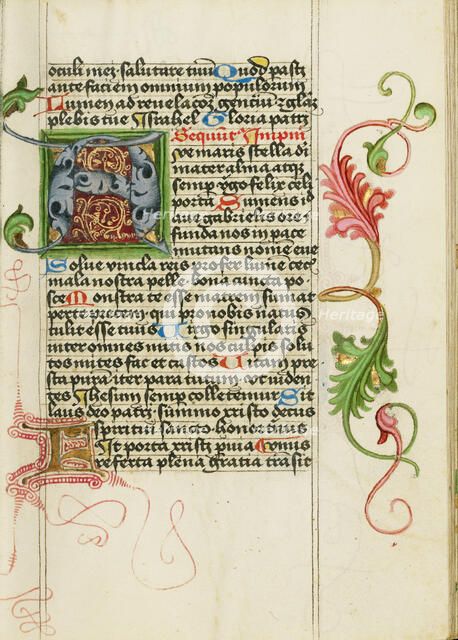 oculi mei salutare tuū Quod pasti
ante faciem omnium populorum
Lumen ad reuelacōꝫ genciū ⁊ glaꝫ
plebis tue Israhel Gloria patri
Sequūt Impni
Aue maris stella di
mater alma atqꝫ
semp virgo felix celi
porta Sumens id
aue gabrielis ore
funda nos in pace
mutans nomē eue
Solue vincla reis profer lumē cecis
mala nostra pelle bona cuncta po
sce Monstra te esse matrem sumat
per te precem qui pro nobis natus
tulit esse tuus Virgo singularis
inter omnes mitis nos culpis solu
tos mites fac et castos Uitam pre
sta puram iter para tutum vt viden
tes Ihesum semp colletemur Sit
laus deo patri summo xristo decus
spiritui sancto honor vnus
Fit porta xristi puia Omnis
referta plena gratia transit
Heritage
Heritage